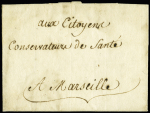 aux Citoyens
Conservateurs de Santé
A Marseille